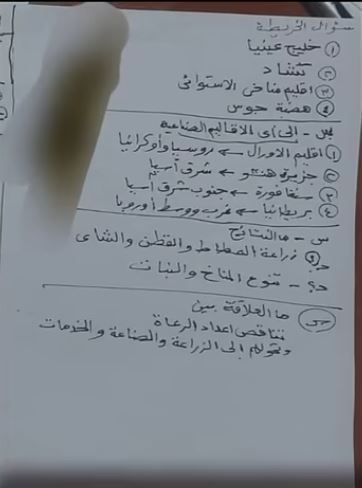 سؤال الخريطة
① خليج غينيا
② تشاد
③ اقليم مناخى الاستوائى
④ هضبة جوس
س - إلى أى الاقاليم الصناعية
① اقليم الاورال ← روسيا وأوكرانيا
② جزيرة هنشو ← شرق آسيا
③ سنغافورة ← جنوب شرق اسيا
④ بريطانيا ← غرب ووسط أوروبا
س - ما النتائج
زراعة المطاط والقطن والشاى
- تنوع المناخ والنبات
س ما العلاقة بين
تناقص اعداد الرعاة
وتحولهم إلى الزراعة والصناعة والخدمات